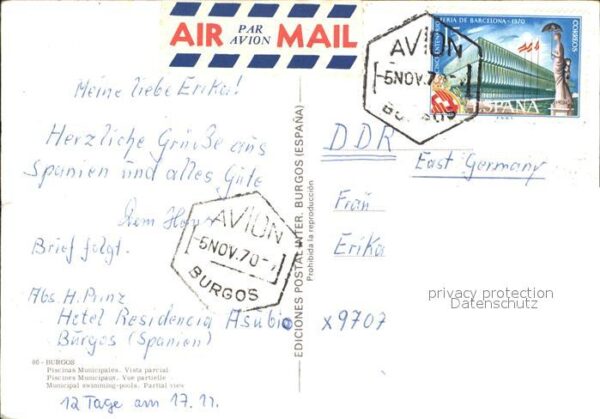 AIR PAR AVION MAIL
FERIA DE BARCELONA-1970
CORREOS
ESPAÑA
AVION
5 NOV. 70
BURGOS
Meine liebe Erika!
Herzliche Grüße aus
Spanien und alles Gute
Dein
Brief folgt.
AVION
5 NOV. 70
BURGOS
Abs. H. Prinz
Hotel Residencia Asubio
Burgos (Spanien)
60 - BURGOS
Piscinas Municipales. Vista parcial
Piscines Municipaux. Vue partielle
Municipal swimming-pools. Partial view
12 Tage am 17.11.
EDICIONES POSTAL INTER. BURGOS (ESPAÑA)
Prohibida la reproducción
DDR
East Germany
Frau
Erika
x9707
privacy protection
Datenschutz